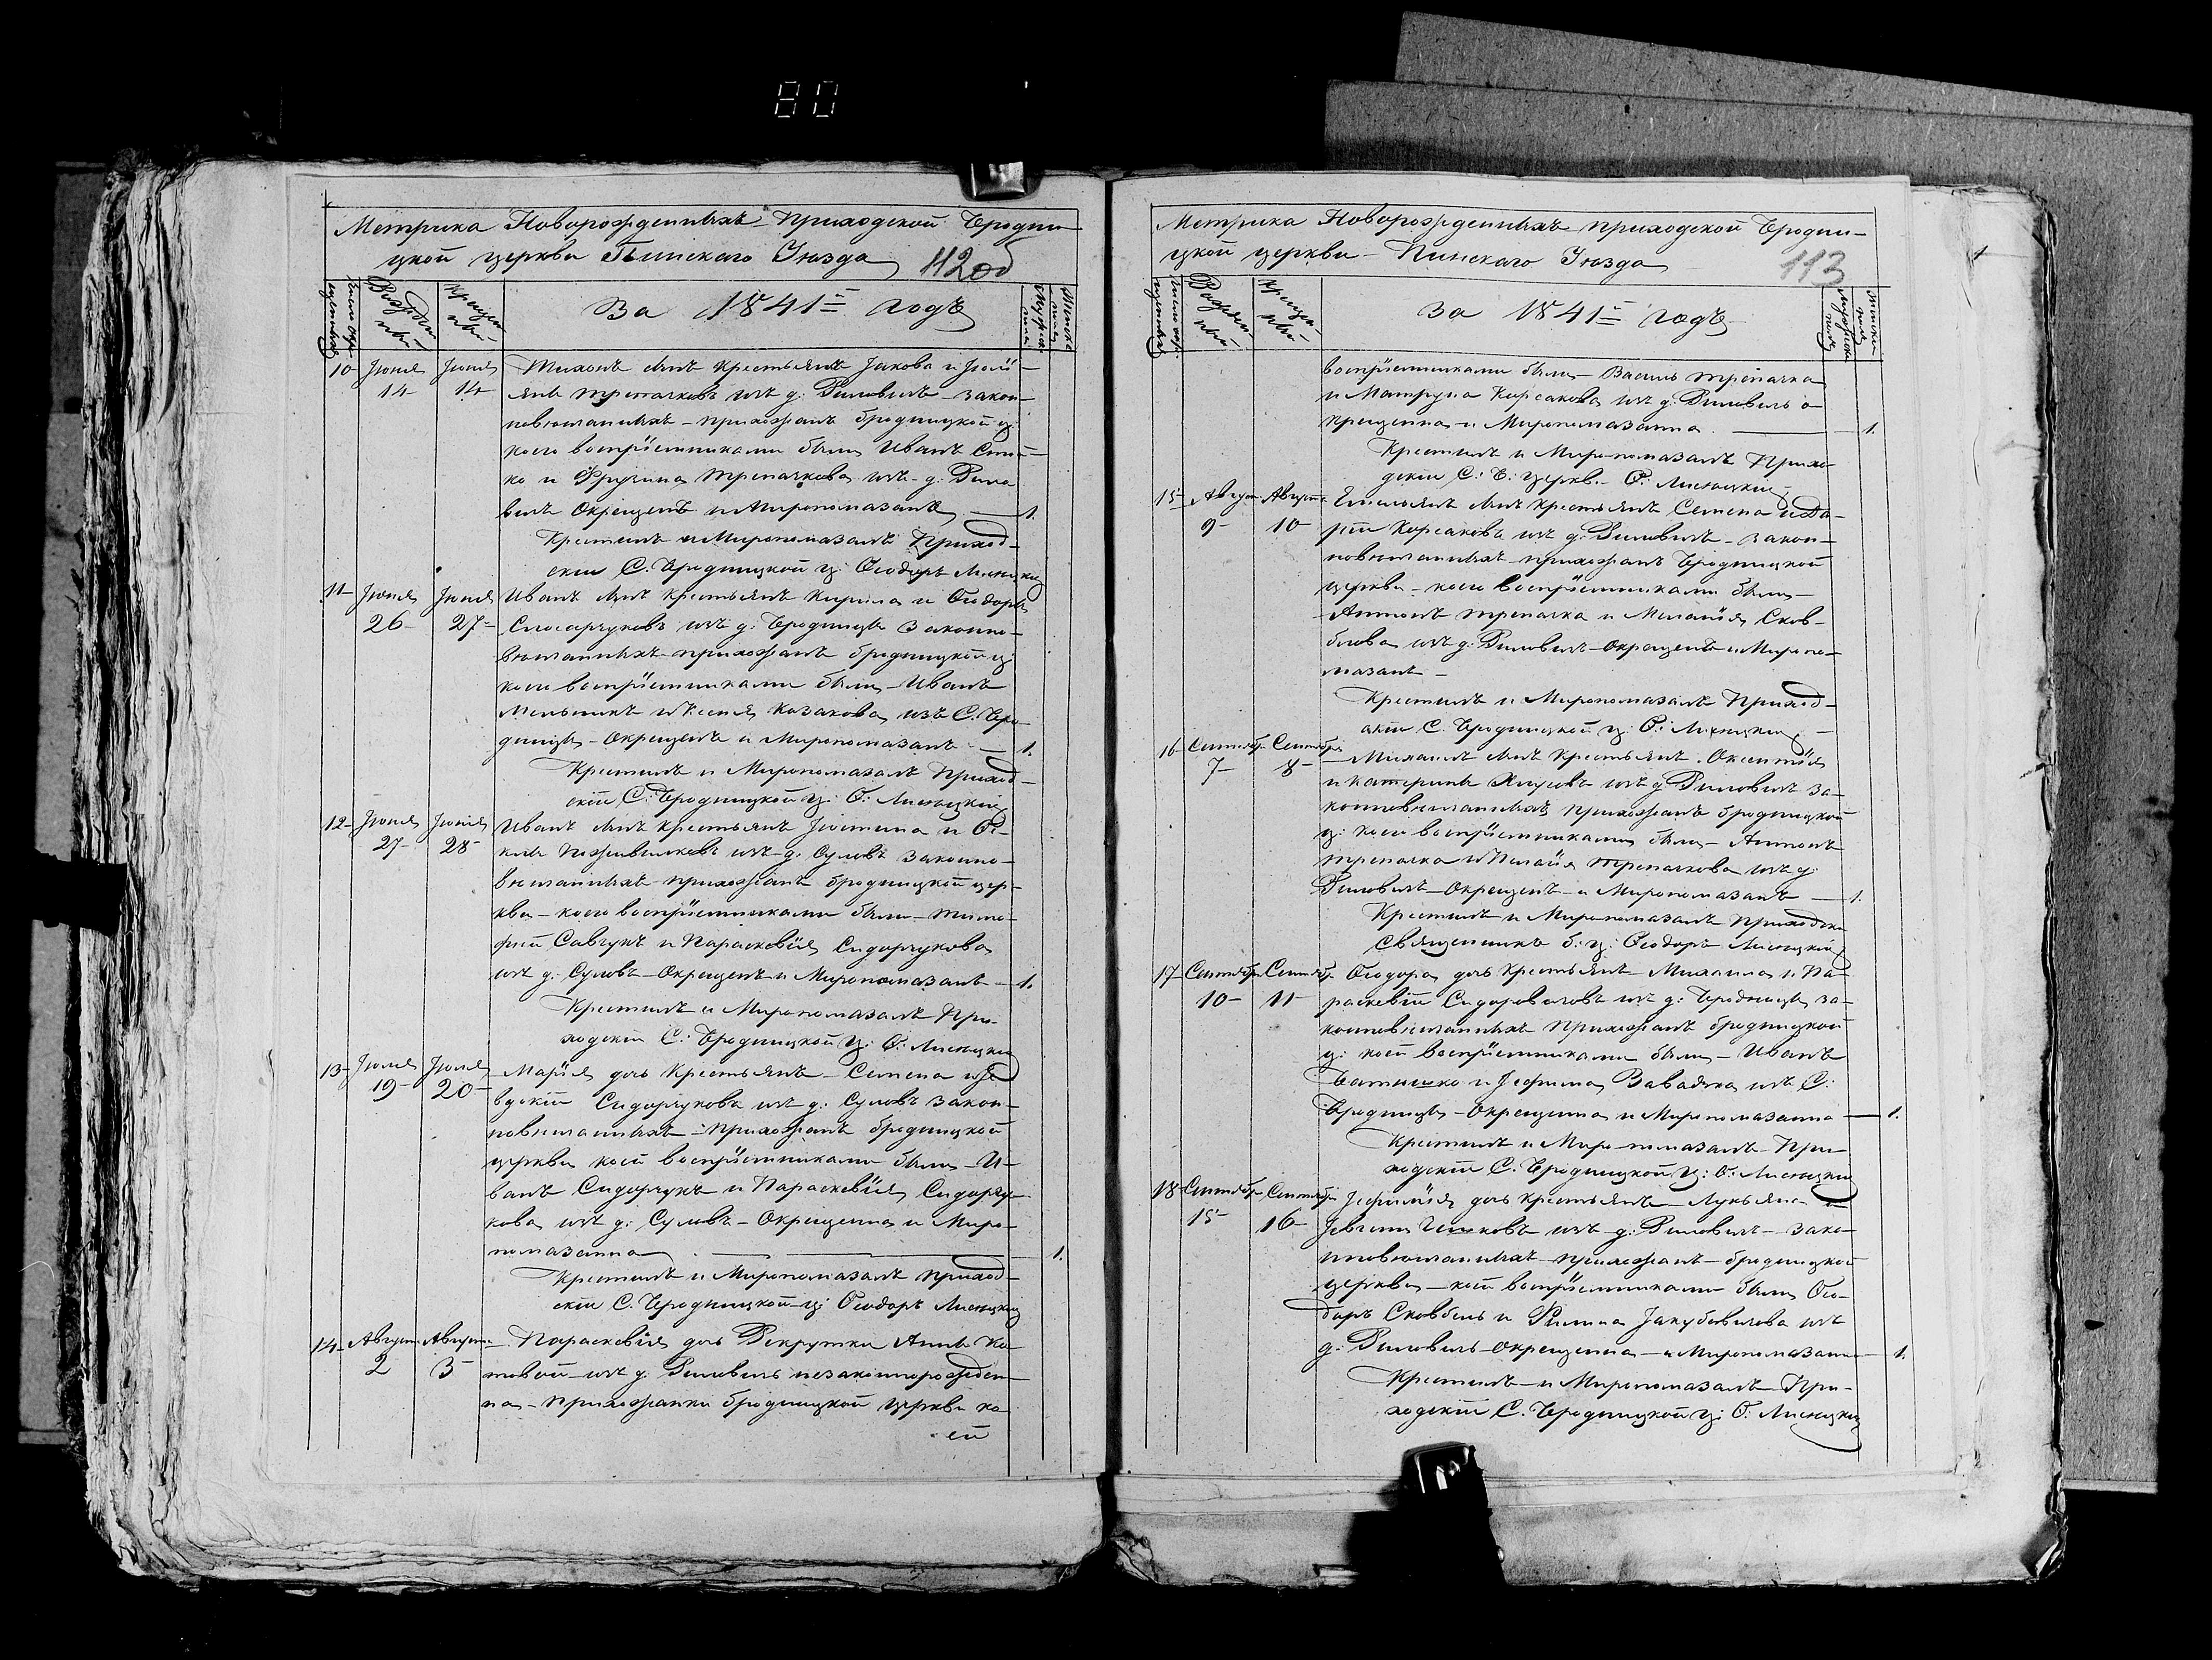 80
Метрика Новорожденныхъ приходской Бродни
цкой церкви Пинскаго Уѣзда 112 об
Число окре
щенныхъ
Рожден
ны
Крещен
ны
За 1841й годъ
Мужеска
пола
Женска
пола
10 Іюня 14 Іюня 14 Тихонъ сынъ крестьянъ Іакова и Іюлі-
яны Трепачковъ изъ д: Риловиль закон-
новѣнчанныхъ прихожанъ бродницкой ц:
коего воспріемниками были Иванъ
ко и Трепачкова изъ д: Рило
виль Окрещенъ и Миропомазанъ — 1.
Крестилъ и Миропомазалъ Приход-
скій С. Бродницкой ц: Ѳеодоръ Лисецкій
11 Іюня 26 Іюня 27 Иванъ сынъ крестьянъ Кирила и Ѳеодоры
Слесарчуковъ изъ д: Бродницы Законно-
вѣнчанныхъ прихожанъ бродницкой ц:
коего воспріемниками были Иванъ
Мельникъ и Ксенія Казакова изъ С. Бро-
дницы - Окрещенъ и Миропомазанъ — 1.
Крестилъ и Миропомазалъ Приход-
скій С. Бродницкой ц: Ѳ: Лисецкій
12 Іюня 27 Іюня 28 Иванъ сынъ крестьянъ Іюстина и Ѳе-
клы изъ д. Суловъ Законно-
вѣнчанныхъ прихожанъ бродницкой цер-
кви - коего воспріемниками были - Тимо-
фей Савчукъ и Параскевія Сидорчукова
изъ д: Суловъ Окрещенъ и Миропомазанъ — 1.
Крестилъ и Миропомазалъ При-
ходскій С. Бродницкой ц: Ѳ: Лисецкій
13 Іюля 19 Іюля 20 Марія дочь крестьянъ Семена и Іе
вдокіи Сидорчуковъ изъ д: Суловъ Закон-
новѣнчанныхъ - прихожанъ бродницкой
церкви коей воспріемниками были - И-
ванъ Сидорчукъ и Параскевія Сидорчу-
кова изъ д: Суловъ - Окрещенна и Миро-
помазанна — 1.
Крестилъ и Миропомазалъ приход-
скій С. Бродницкой ц: Ѳеодоръ Лисецкій
14 Август 2 Август 3 Параскевія дочь Рекрутки Анны Ко
товой изъ д. Риловиль незаконнорожден-
на - прихожанки бродницкой церкви ко
ей
Метрика Новорожденныхъ приходской Бродни-
цкой церкви Пинскаго Уѣзда 113
Число окре
щенныхъ
Рожден-
ны
Крещен-
ны
За 1841й годъ
Мужеска
пола
Женска
пола
воспріемниками были - Василь Трепачка
и Матруна Корсакова изъ д: Риловиль о-
крещенна и Миропомазанна — 1.
Крестилъ и Миропомазалъ Прихо-
дскій С: Б: церкв. Ѳ: Лисецкій
15 Август 9 Август 10 Емельянъ сынъ крестьянъ Семена и Да-
ріи Корсаковъ изъ д: Риловиль - закон-
новѣнчанныхъ прихожанъ Бродницкой
церкви - коего воспріемниками были -
Антонъ Трепачка и Меланія Сков-
блова изъ д: Риловиль Окрещенъ и Миропо-
мазанъ -
Крестилъ и Миропомазалъ Приход-
скій С. Бродницкой ц: Ѳ: Лисецкій
16 Сентябр 7 Сентябр 8 Михаилъ сынъ крестьянъ
и Катерины изъ д Риловиль за-
конновѣнчанныхъ прихожанъ бродницкой
ц: коего воспріемниками были Антонъ
Трепачка и Пелагія Трепачкова изъ д:
Риловиль Окрещенъ и Миропомазанъ — 1.
Крестилъ и Миропомазалъ приходскій
Священникъ б: ц: Ѳеодоръ Лисецкій
17 Сентябр 10 Сентябр 11 Ѳеодора дочь крестьянъ Михаила и Па-
раскевіи Сидоровичовъ изъ д: Бродницы за-
конновѣнчанныхъ Прихожанъ бродницкой
ц: коей воспріемниками были - Иванъ
и Іефима изъ С:
Бродницы - Окрещенна и Миропомазанна — 1.
Крестилъ и Миропомазалъ При-
ходскій С. Бродницкой ц: Ѳ: Лисецкій
18 Сентябр 15 Сентябр 16 Іефимія дочь крестьянъ Лукьяна и
Іевгени изъ д: Риловиль - зако-
нновѣнчанныхъ прихожанъ бродницкой
церкви - коей воспріемниками были Ѳео-
доръ Сковбель и Якубовичова изъ
д: Риловиль Окрещенна и Миропомазанна — 1.
Крестилъ и Миропомазалъ При-
ходскій С. Бродницкой ц: Ѳ: Лисецкій